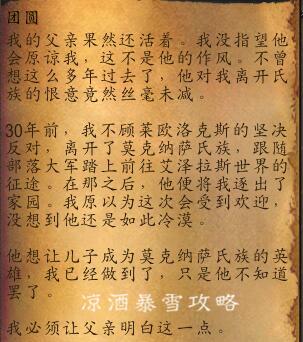 团圆
我的父亲果然还活着。我没指望他
会原谅我，这不是他的作风。不曾
想这么多年过去了，他对我离开氏
族的恨意竟然丝毫未减。
30年前，我不顾莱欧洛克斯的坚决
反对，离开了莫克纳萨氏族，跟随
部落大军踏上前往艾泽拉斯世界的
征途。在那之后，他便将我逐出了
家园。我原以为这次会受到欢迎，
没想到他还是如此冷漠。
他想让儿子成为莫克纳萨氏族的英
雄，我已经做到了，只是他不知道
罢了。
凉酒暴雪攻略
我必须让父亲明白这一点。